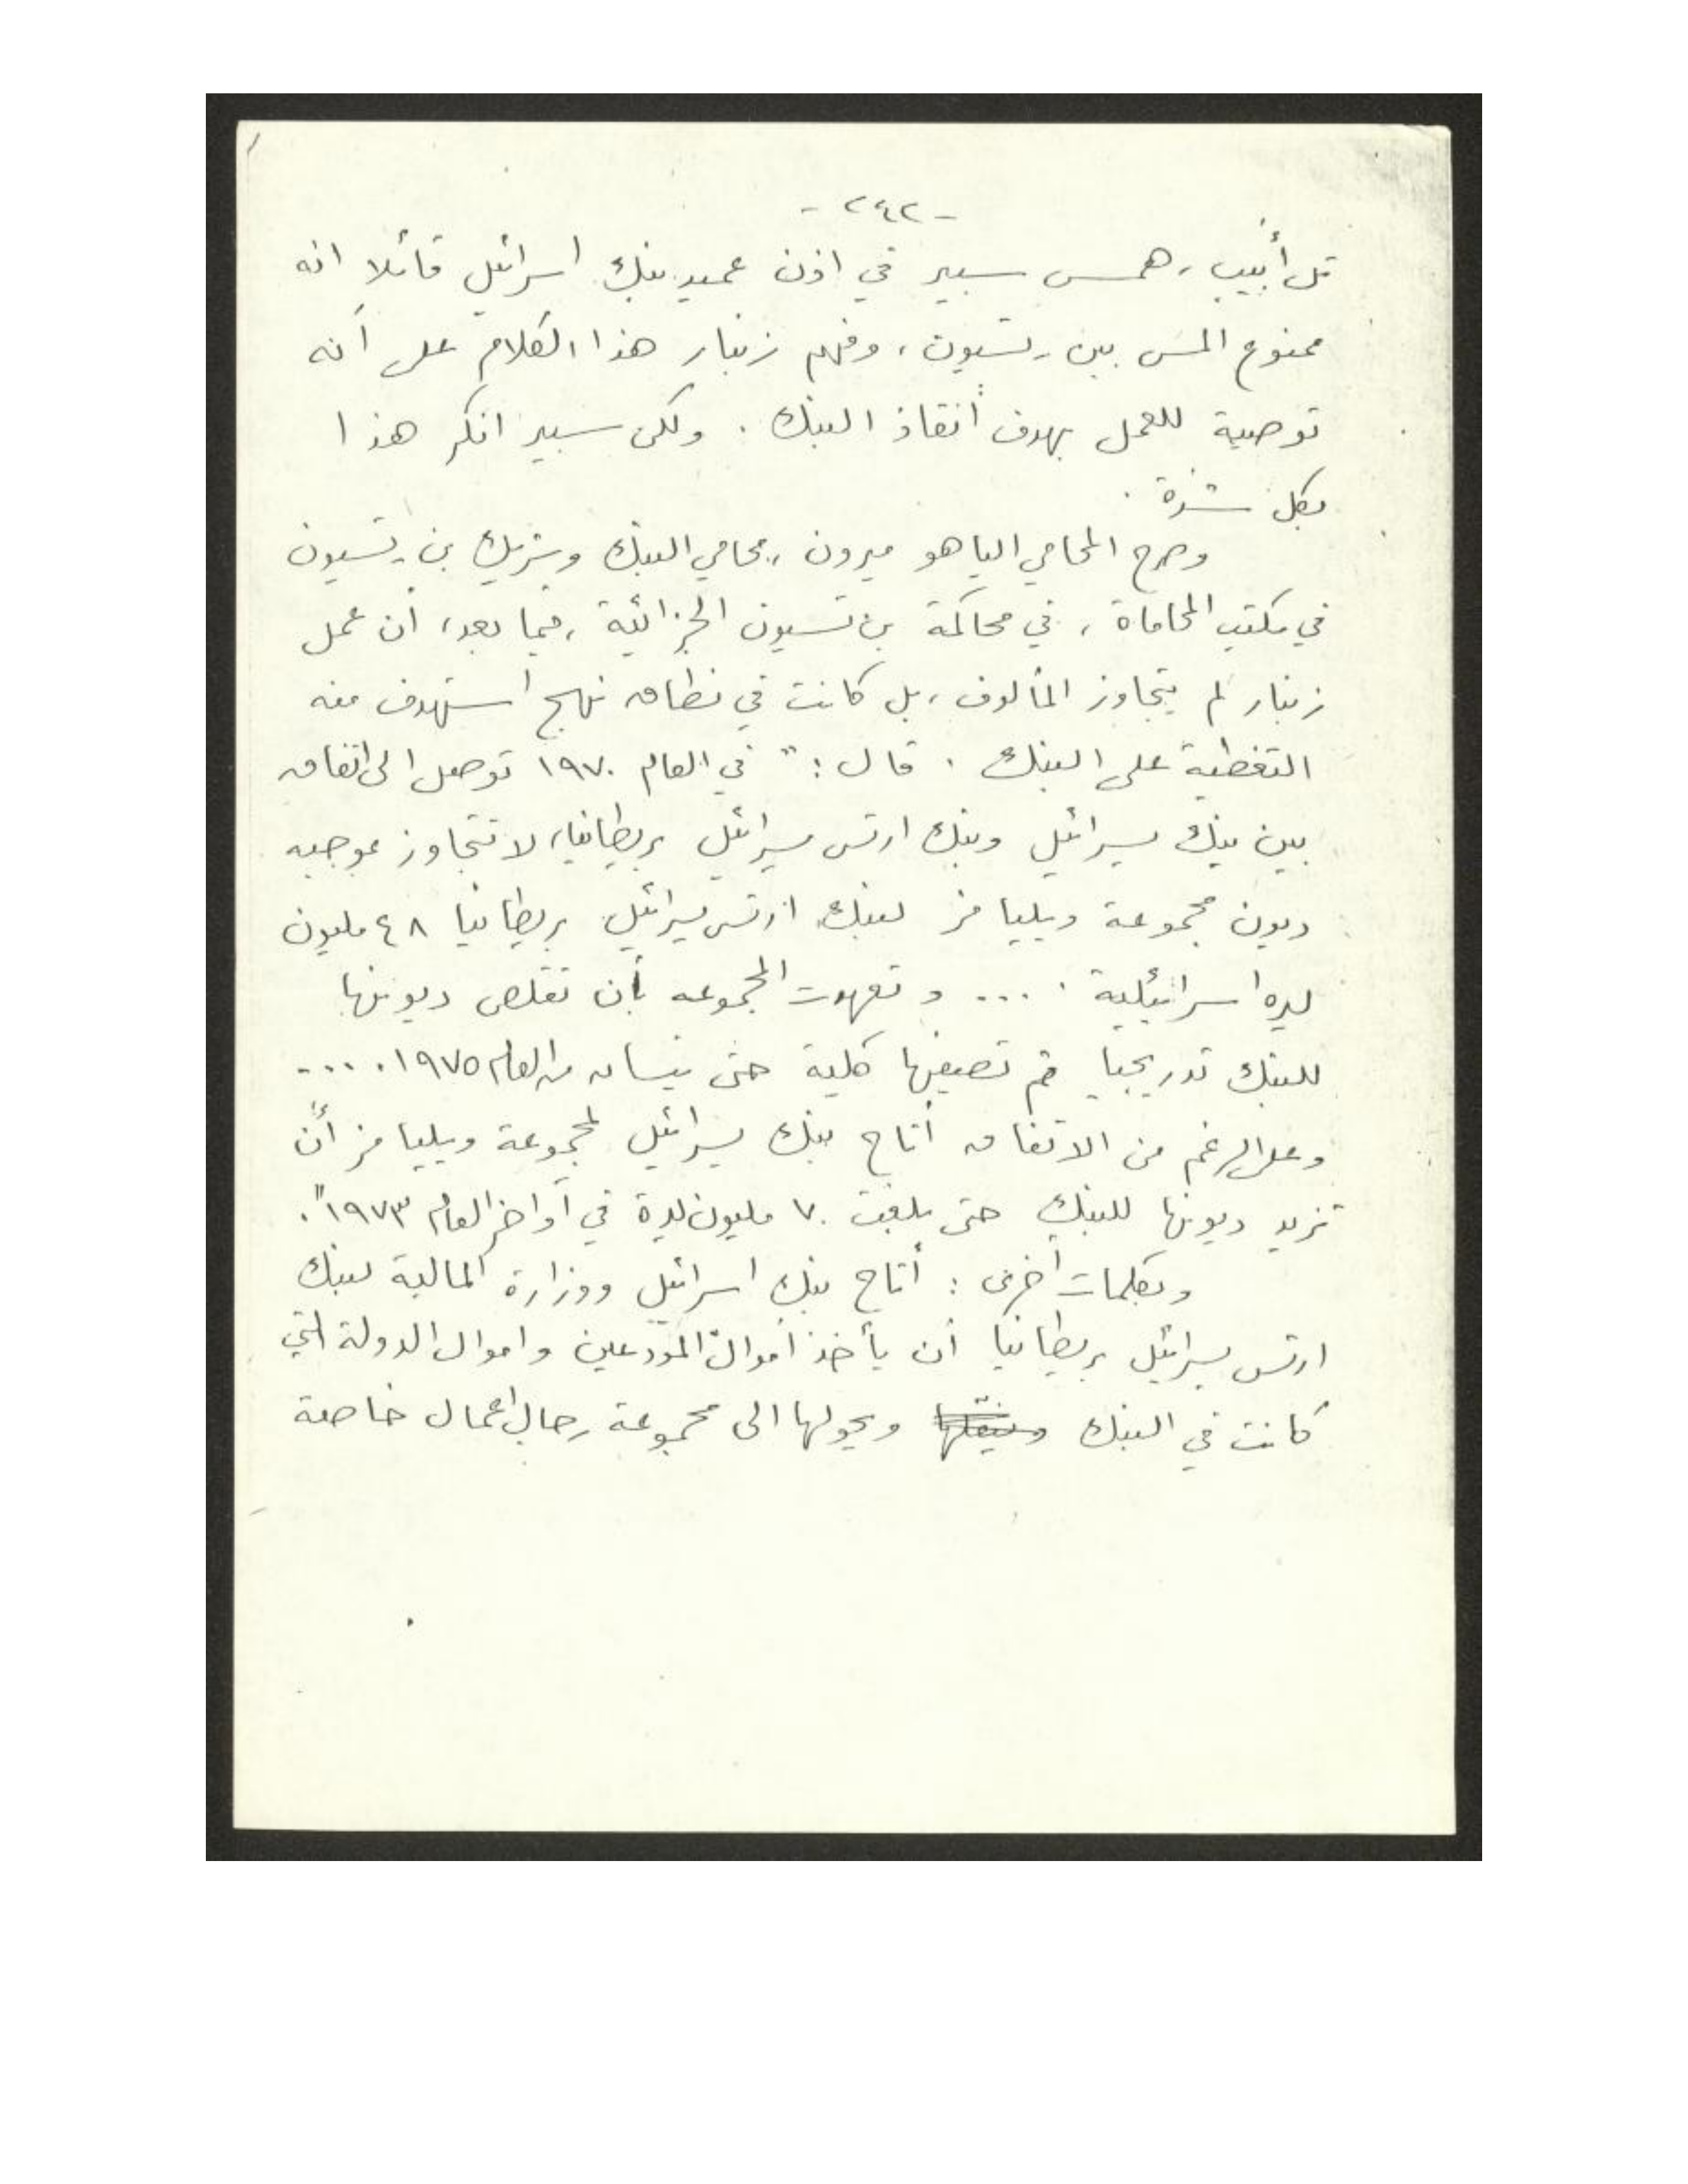 - ٢٤٢ -
تل أبيب، همس سبير في اذن عميد بنك اسرائيل قائلا انه
ممنوع المس ببن - تسيون، وفهم زنبار هذا الكلام على أنه
توصية للعمل بهدف أنقاذ البنك . ولكن سبير انكر هذا
بكل شدة .
وصرح المحامي الياهو ميرون، محامي البنك وشريك بن - تسيون
في مكتب المحاماة ، في محاكمة بن تسيون الجزائية ، فيما بعد، أن عمل
زنبار لم يتجاوز المألوف ، بل كانت في نطاق نهج استهدف منه
التغطية على البنك . قال : " في العام ١٩٧٠ توصل الى اتفاق
بين بنك يسرائيل وبنك ارتس يسرائيل بريطانيا، لا تتجاوز بموجبه
ديون مجموعة ويليامز لبنك ارتس يسرائيل بريطانيا ٤٨ مليون
ليره اسرائيلية . ... و تعهدت المجموعه بأن تقلص ديونها
للبنك تدريجيا ثم تصفيها كلية حتى نيسان من العام ١٩٧٥ . ...
وعلى الرغم من الاتفاق أتاح بنك يسرائيل لمجموعة ويليامز أن
تزيد ديونها للبنك حتى بلغت ٧٠ مليون ليرة في أواخر العام ١٩٧٣" .
وبكلمات أخرى : أتاح بنك اسرائيل ووزارة المالية لبنك
ارتس يسرائيل بريطانيا أن يأخذ أموال المودعين واموال الدولة التي
كانت في البنك ويحولها الى مجموعة رجال اعمال خاصة